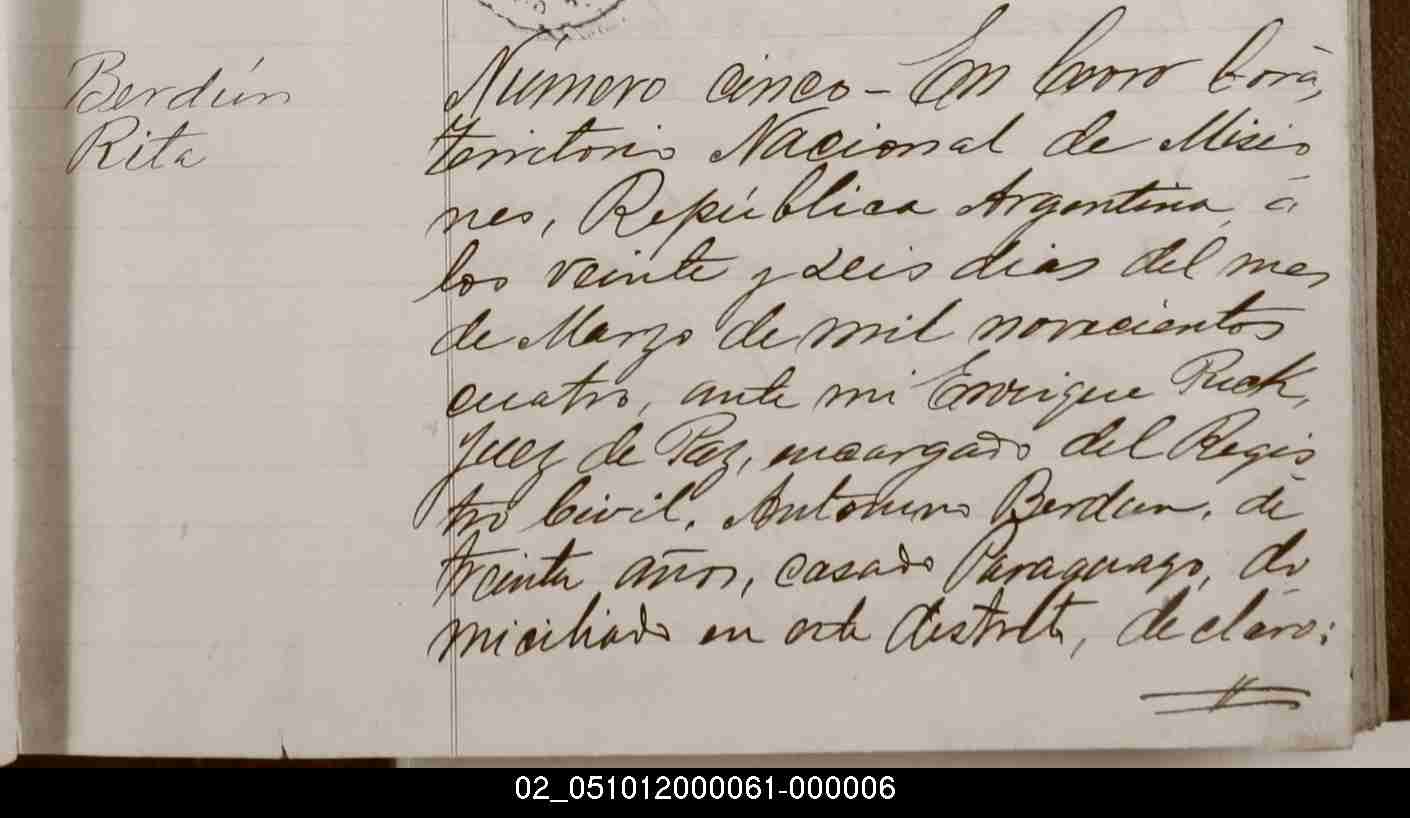 Berdún
Rita
Número cinco - En Cerro Corà,
territorio Nacional de Misio
nes, República Argentina, á
los veinte y seis dias del mes
de Marzo de mil novecientos
cuatro, ante mi Enrique Puck,
Juez de Paz, encargado del Regis
tro Civil, Antonino Berdun, de
treinta años, casado Paraguayo, do
miciliado en este distrito, declaro:
02_051012000061-000006